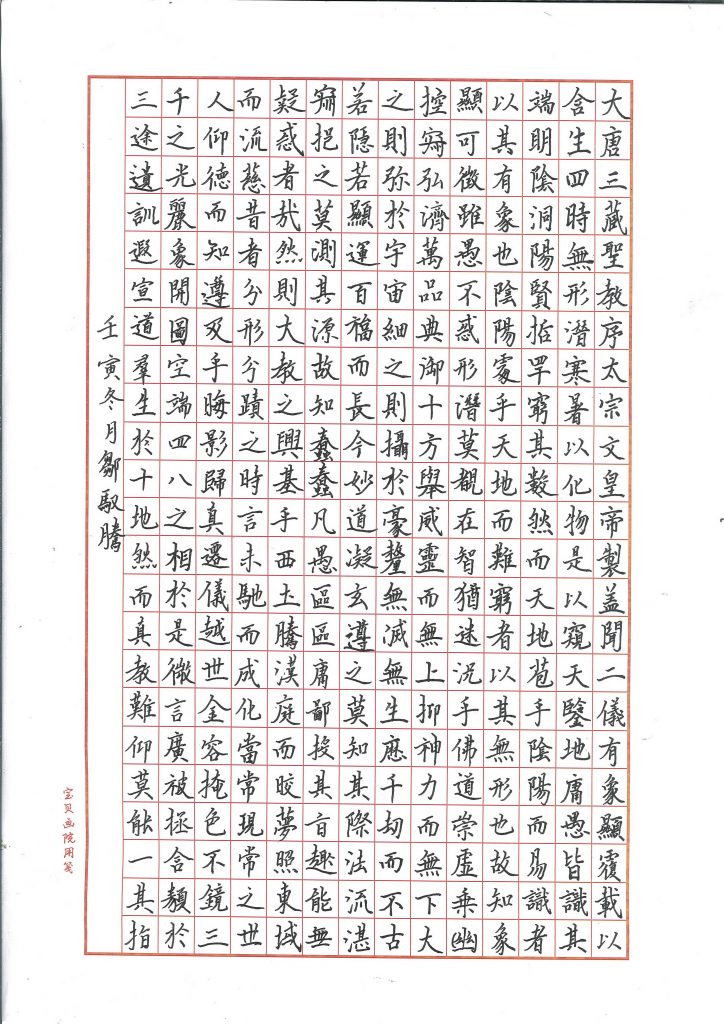 大唐三藏聖教序太宗文皇帝製盖聞二儀有象顯覆載以
含生四時無形潛寒暑以化物是以窺天鑒地庸愚皆識其
端明陰洞陽賢哲罕窮其數然而天地苞乎陰陽而易識者
以其有象也陰陽處乎天地而難窮者以其無形也故知象
顯可徵雖愚不惑形潛莫覩在智猶迷況乎佛道崇虛乘幽
控寂弘濟萬品典御十方舉威靈而無上抑神力而無下大
之則弥於宇宙細之則攝於豪釐無滅無生應千劫而不古
若隱若顯運百福而長今妙道凝玄遵之莫知其際法流湛
寂挹之莫測其源故知蠢蠢凡愚區區庸鄙投其旨趣能無
疑惑者哉然則大教之興基乎西土騰漢庭而皎夢照東域
而流慈昔者分形分蹟之時言未馳而成化當常現常之世
人仰德而知遵及乎晦影歸真遷儀越世金容掩色不鏡三
千之光麗象開圖空端四八之相於是微言廣被拯含類於
三途遺訓遐宣道羣生於十地然而真教難仰莫能一其指
壬寅冬月鄒馭騰
宝贝画院用笺